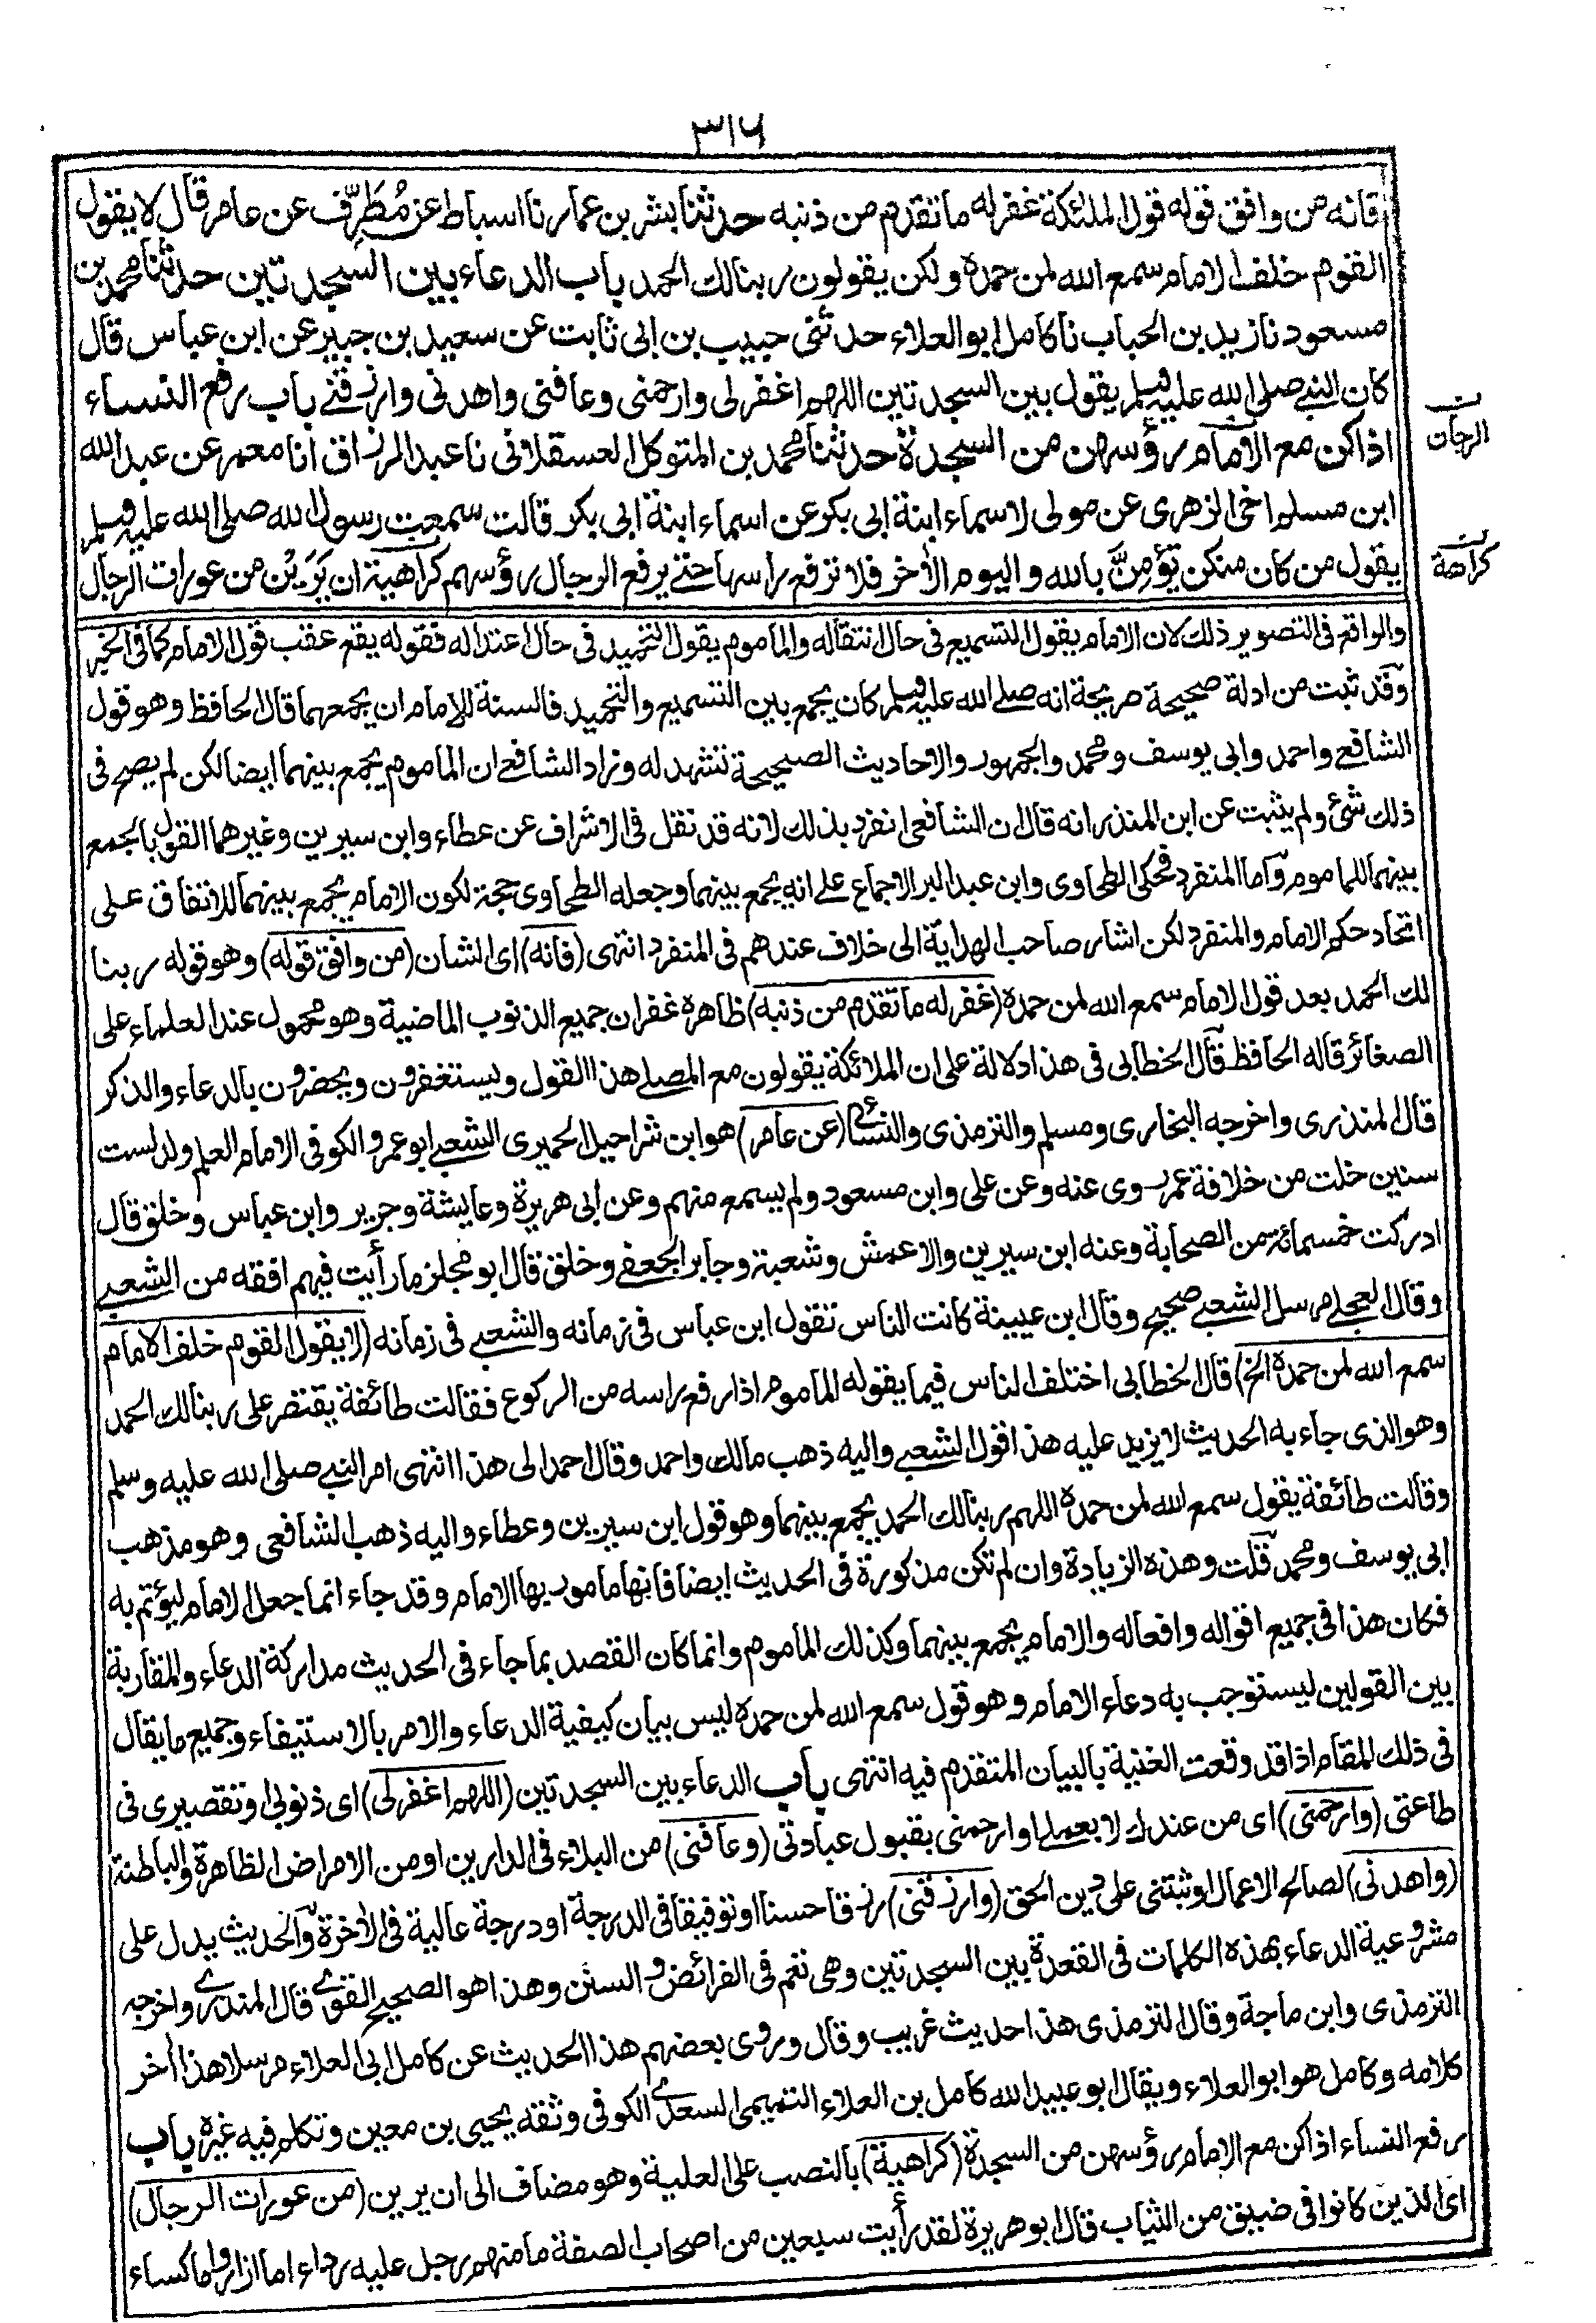 ٣١٦
فانه من وافق قوله قول الملئكة غفر له ما تقدم من ذنبه حدثنا بشر بن عمار نا اسباط عن مُطَرِّف عن عامر قال لا يقول
القوم خلف الامام سمع الله لمن حمده ولكن يقولون ربنا لك الحمد باب الدعاء بين السجدتين حدثنا محمد بن
مسعود نا زيد بن الحباب نا كامل ابو العلاء حدثنى حبيب بن ابى ثابت عن سعيد بن جبير عن ابن عباس قال
كان النبى صلى الله عليه وسلم يقول بين السجدتين اللهم اغفر لى وارحمنى وعافنى واهدنى وارزقنى باب رفع النساء
اذا كن مع الامام رؤسهن من السجدة حدثنا محمد بن المتوكل العسقلانى نا عبد الرزاق انا معمر عن عبد الله
ابن مسلم اخى الزهرى عن مولى لاسماء ابنة ابى بكر عن اسماء ابنة ابى بكر قالت سمعت رسول الله صلى الله عليه وسلم
يقول من كان منكن تؤمِنّ بالله واليوم الأخر فلا ترفع راسها حتى يرفع الرجال رؤسهم كراهية ان يَرَيْن من عورات الرجال
الرجال
كراهة
والواقع فى التصوير ذلك لان الامام يقول التسميع فى حال انتقاله والماموم يقول التحميد فى حال اعتداله فقوله يقع عقب قول الامام كما فى الخبر
وقد ثبت من ادلة صحيحة صريحة انه صلى الله عليه وسلم كان يجمع بين التسميع والتحميد فالسنة للامام ان يجمعهما قال الحافظ وهو قول
الشافعى واحمد وابى يوسف ومحمد والجمهور والاحاديث الصحيحة تشهد له وزاد الشافعى ان الماموم يجمع بينهما ايضا لكن لم يصح فى
ذلك شئ ولم يثبت عن ابن المنذر انه قال ان الشافعى انفرد بذلك لانه قد نقل فى الاشراف عن عطاء وابن سيرين وغيرهما القول بالجمع
بينهما للماموم وأما المنفرد فحكى الطحاوى وابن عبد البر الاجماع على انه يجمع بينهما وجعله الطحاوى حجة لكون الامام يجمع بينهما للاتفاق على
اتحاد حكم الامام والمنفرد لكن اشار صاحب الهداية الى خلاف عندهم فى المنفرد انتهى (فانه) اى الشان (من وافق قوله) وهو قوله ربنا
لك الحمد بعد قول الامام سمع الله لمن حمده (غفر له ما تقدم من ذنبه) ظاهره غفران جميع الذنوب الماضية وهو محمول عند العلماء على
الصغائر قاله الحافظ قال الخطابى فى هذا دلالة على ان الملائكة يقولون مع المصلى هذا القول ويستغفرون ويحضرون بالدعاء والذكر
قال المنذرى واخرجه البخارى ومسلم والترمذى والنسائى (عن عامر) هو ابن شراحيل الحميرى الشعبى ابو عمرو الكوفى الامام العلم ولد لست
سنين خلت من خلافة عمر روى عنه وعن على وابن مسعود ولم يسمع منهم وعن ابى هريرة وعايشة وجرير وابن عباس وخلق قال
ادركت خمسمائة من الصحابة وعنه ابن سيرين والاعمش وشعبة وجابر الجعفى وخلق قال ابو مجلز ما رأيت فيهم افقه من الشعبى
وقال العجلى مرسل الشعبى صحيح وقال ابن عيينة كانت الناس تقول ابن عباس فى زمانه والشعبى فى زمانه (لا يقول القوم خلف الامام
سمع الله لمن حمده الخ) قال الخطابى اختلف الناس فيما يقوله الماموم اذا رفع راسه من الركوع فقالت طائفة يقتصر على ربنا لك الحمد
وهو الذى جاء به الحديث لا يزيد عليه هذا قول الشعبى واليه ذهب مالك واحمد وقال احمد الى هذا انتهى امر النبى صلى الله عليه وسلم
وقالت طائفة يقول سمع الله لمن حمده اللهم ربنا لك الحمد يجمع بينهما وهو قول ابن سيرين وعطاء واليه ذهب الشافعى وهو مذهب
ابى يوسف ومحمد قلت وهذه الزيادة وان لم تكن مذكورة فى الحديث ايضا فانها مامور بها الامام وقد جاء انما جعل الامام ليؤتم به
فكان هذا فى جميع اقواله وافعاله والامام يجمع بينهما وكذلك الماموم وانما كان القصد بما جاء فى الحديث مداركة الدعاء والمقاربة
بين القولين ليستوجب به دعاء الامام وهو قول سمع الله لمن حمده ليس بيان كيفية الدعاء والامر بالاستيفاء وجميع ما يقال
فى ذلك المقام اذ قد وقعت الغنية بالبيان المتقدم فيه انتهى باب الدعاء بين السجدتين (اللهم اغفر لى) اى ذنوبى او تقصيرى فى
طاعتى (وارحمنى) اى من عندك لا بعملى او ارحمنى بقبول عبادتى (وعافنى) من البلاء فى الدارين او من الامراض الظاهرة والباطنة
(واهدنى) لصالح الاعمال او ثبتنى على دين الحق (وارزقنى) رزقا حسنا او توفيقا فى الدرجة او درجة عالية فى الأخرة والحديث يدل على
مشروعية الدعاء بهذه الكلمات فى القعدة بين السجدتين وهى تعم فى الفرائض والسنن وهذا هو الصحيح القوى قال المنذرى واخرجه
الترمذى وابن ماجة وقال الترمذى هذا حديث غريب وقال وروى بعضهم هذا الحديث عن كامل ابى العلاء مرسلا هذا أخر
كلامه وكامل هو ابو العلاء ويقال ابو عبيد الله كامل بن العلاء التميمى السعدى الكوفى وثقه يحيى بن معين وتكلم فيه غيره باب
رفع النساء اذا كن مع الامام رؤسهن من السجدة (كراهية) بالنصب على العلية وهو مضاف الى ان يرين (من عورات الرجال)
اى الذين كانوا فى ضيق من الثياب قال ابو هريرة لقد رأيت سبعين من اصحاب الصفة ما منهم رجل عليه رداء اما ازار واما كساء